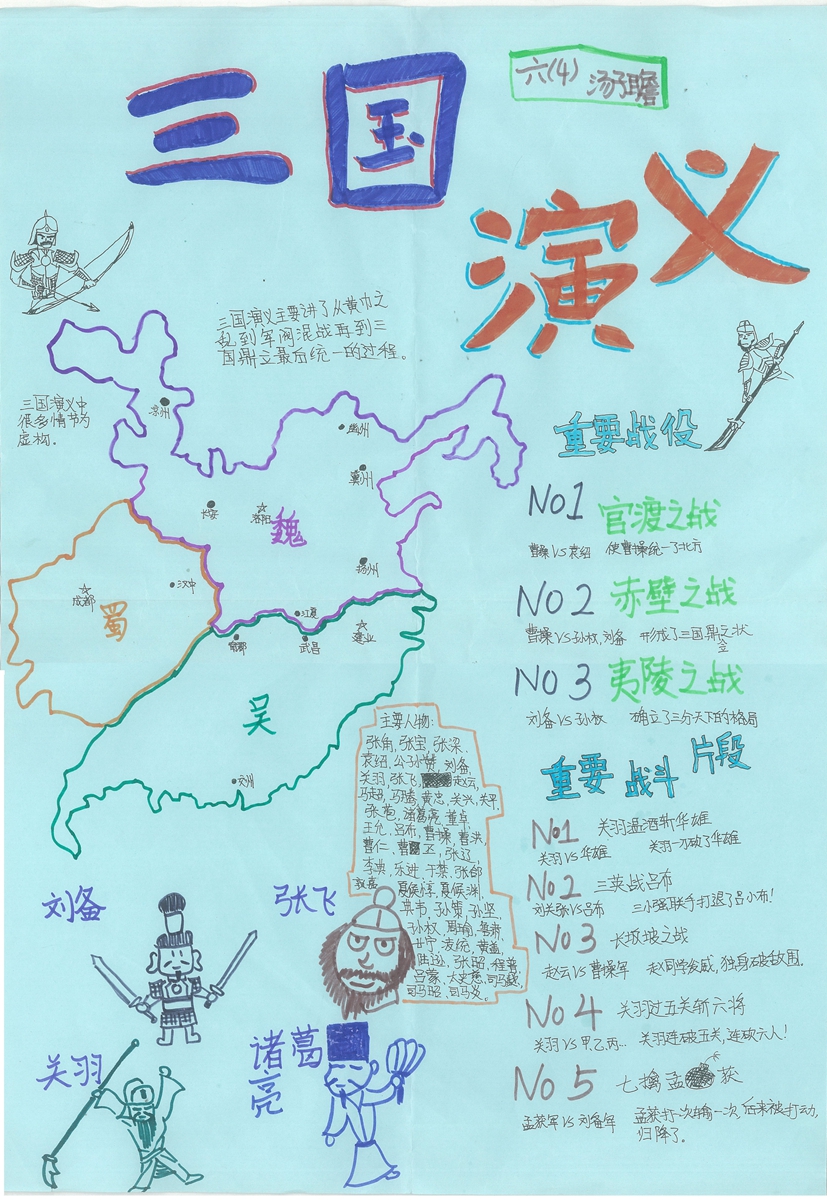 三国
六(4) 汤子瞻
演义
三国演义主要讲了从黄巾之
乱到军阀混战再到三
国鼎立最后统一的过程。
三国演义中
很多情节为
虚构。
凉州
幽州
冀州
长安
洛阳
魏
扬州
成都
汉中
蜀
江夏
武昌
建业
吴
交州
重要战役
No1 官渡之战
曹操VS袁绍 使曹操统一了北方
No2 赤壁之战
曹操VS孙权,刘备 形成了三国鼎立之状
No3 夷陵之战
刘备VS孙权 确立了三分天下的格局
主要人物:
张角,张宝,张梁,
袁绍,公孙瓒,刘备,
关羽,张飞,赵云,
马超,马腾,黄忠,关兴,关平
张苞,诸葛亮,董卓,
王允,吕布,曹操,曹洪,
曹仁,曹丕,张辽,
李典,乐进,于禁,张郃
夏侯惇,夏侯渊,
典韦,孙策,孙坚,
孙权,周瑜,鲁肃,
甘宁,凌统,黄盖,
陆逊,张昭,程普,
吕蒙,太史慈,司马懿,
司马昭,司马炎。
重要战斗片段
No1 关羽温酒斩华雄
关羽VS华雄 关羽一刀砍了华雄
No2 三英战吕布
刘关张VS吕布 三小强联手打退了吕小布!
No3 长坂坡之战
赵云VS曹操军 赵同学发威,独身破敌围.
No4 关羽过五关斩六将
关羽VS甲乙丙… 关羽连破五关,连砍六人!
No5 七擒孟获
孟获军VS刘备军 孟获打一次输一次,后来被打动,
归降了。
刘备
张飞
关羽
诸葛
亮